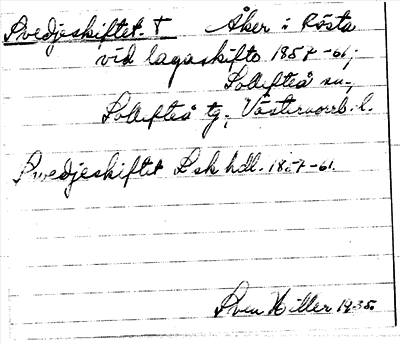 Svedjeskiftet. T Åker i Rösta
vid lagaskifte 1857-61;
Sollefteå sn.,
Sollefteå tg., Västernorrl. l.
Svedjeskiftet Lsk hdl. 1857-61.
Sven Hiller 1935.